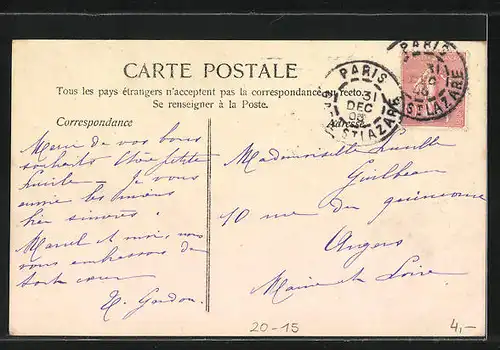 CARTE POSTALE
Tous les pays étrangers n'acceptent pas la correspondance au recto.
Se renseigner à la Poste.
Correspondance
Adresse
PARIS
31
DEC
ST LAZARE
PARIS
31
ST LAZARE
Merci de vos bons
souhaits chère petite
Je vous
envoie les miens
bien sincères
Marcel et moi, nous
vous embrassons de
tout cœur
Mademoiselle
10 rue du quinconce
Angers
Maine et Loire
20-15
4,-